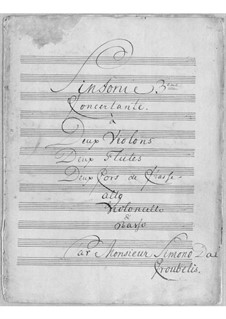 Sinfonie 3me
Concertante.
à
Deux Violons
Deux Flutes
Deux Cors de Chasse
alto
Violoncello
&
Basso
Par Monsieur Simoni Dal
Croubelis.